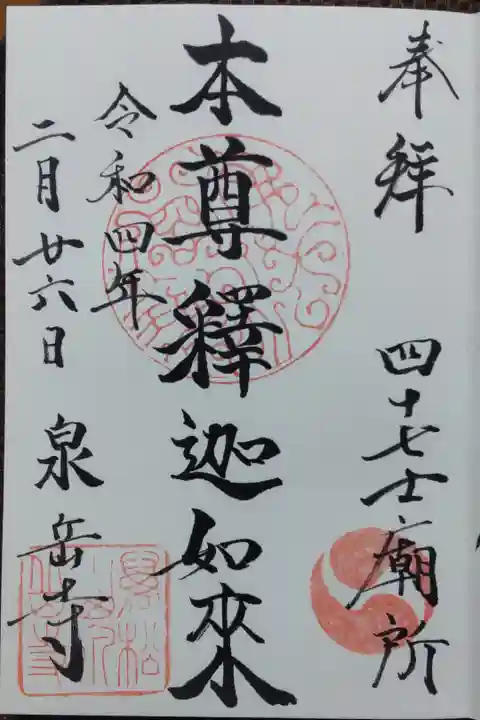 奉拜 四十七士廟所
本尊釋迦如來
令和四年
二月廿六日 泉岳寺